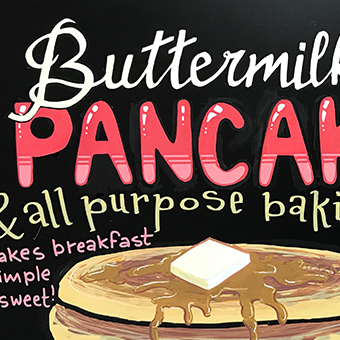 Buttermilk
PANCAK
& all purpose baki
akes breakfast
imple
sweet!